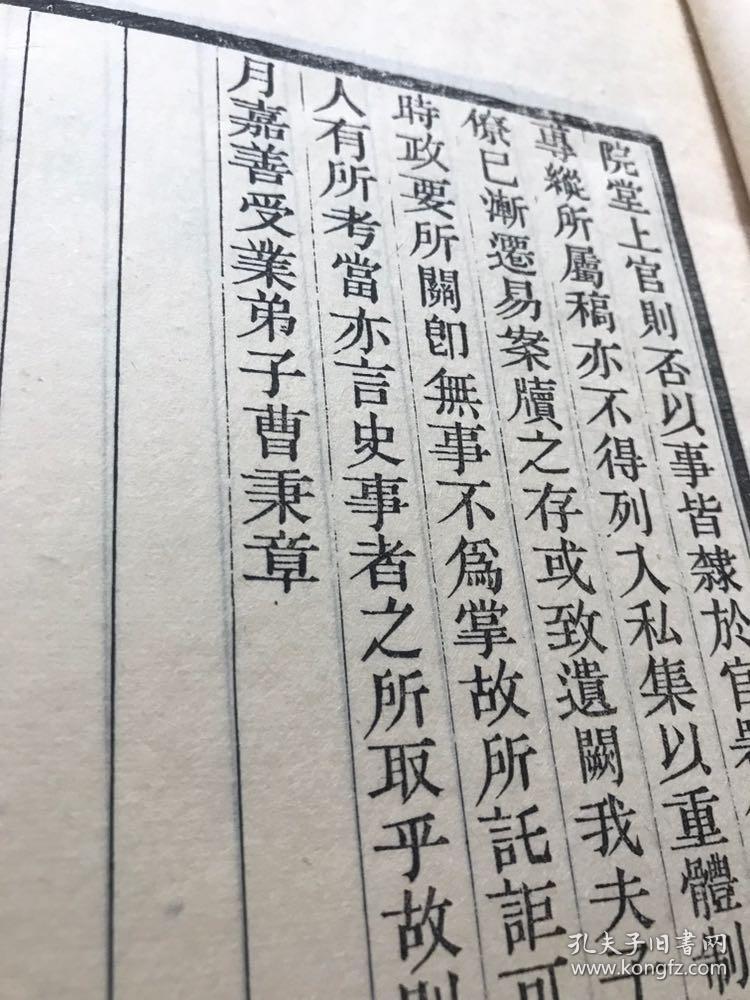 院堂上官則否以事皆隸於官
專縱所屬稿亦不得列入私集以重體制
僚已漸遷易案牘之存或致遺闕我夫子
時政要所關卽無事不爲掌故所託詎可
人有所考當亦言史事者之所取乎故則
月嘉善受業弟子曹秉章
孔夫子旧书网
www.kongfz.com